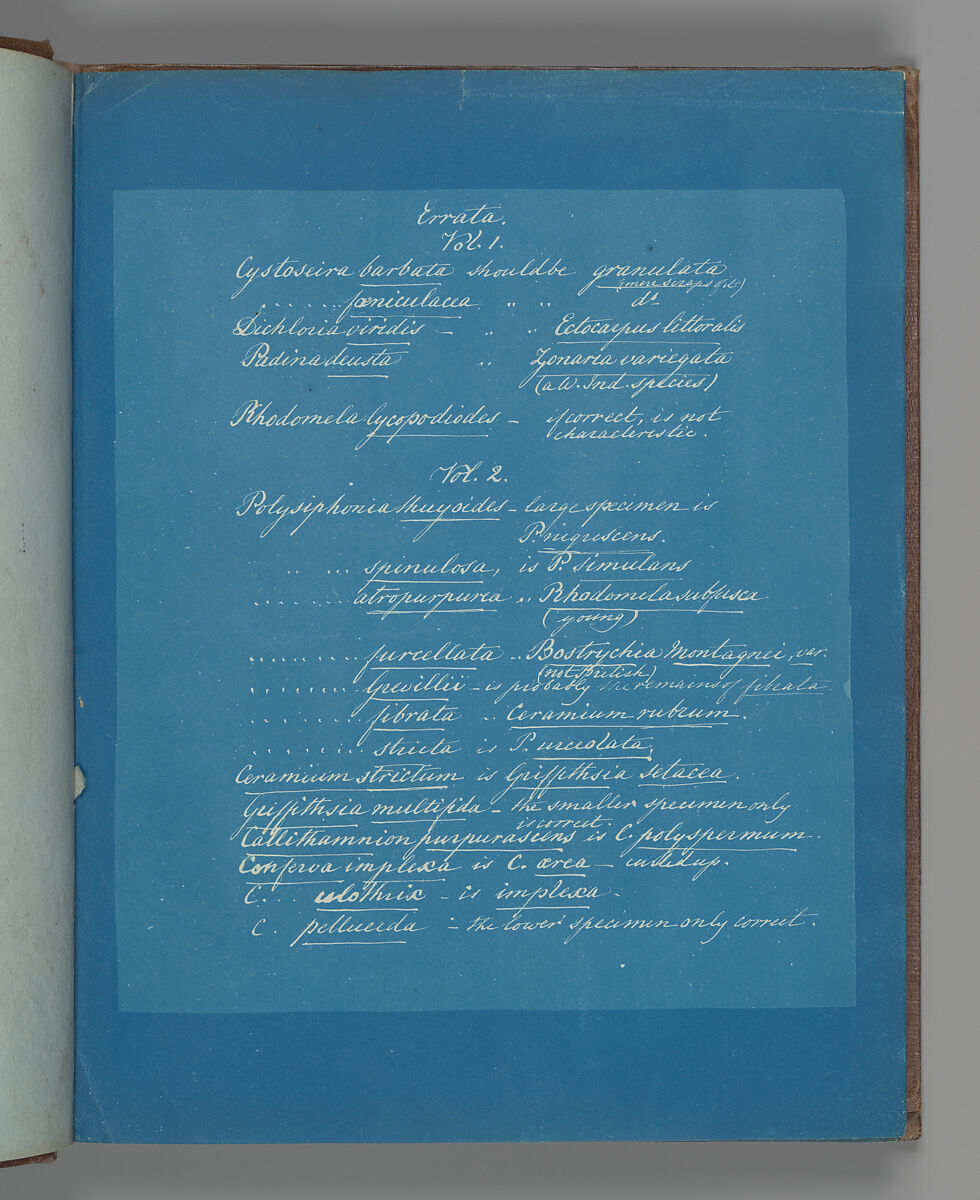 Errata.
Vol. 1.
Cystoseira barbata should be granulata
(mere scraps of it)
. . . . . . . fœniculacea " " do
Dichloria viridis — " " Ectocarpus littoralis
Padina deusta " Zonaria variegata
(a W. Ind. species)
Rhodomela lycopodiodes — if correct, is not
characteristic.
Vol. 2.
Polysiphonia thuyoides — large specimen is
P. nigrescens.
. . . . . spinulosa, is P. simulans
. . . . . . . . atropurpurea " Rhodomela subfusca
(young)
. . . . . . . . furcellata " Bostrychia Montagnei, var.
(not British)
. . . . . . . . Grevillii — is probably the remains of fibrata.
. . . . . . . . fibrata " Ceramium rubrum.
. . . . . . . . stricta is P. urceolata.
Ceramium strictum is Griffithsia setacea.
Griffithsia multifida — the smaller specimen only
is correct.
Callithamnion purpurascens is C. polyspermum.
Conferva implexa is C. ærea — curled up.
C. . . ulothrix — is implexa —
C. pellucida — the lower specimen only correct.